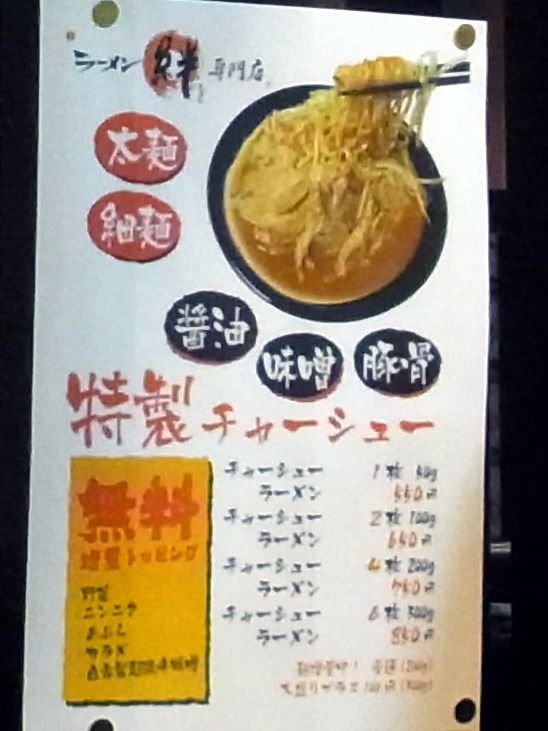 ラーメン 絆 専門店
太麺
細麺
醤油
味噌
豚骨
特製チャーシュー
チャーシュー 1枚 50g
ラーメン 550円
チャーシュー 2枚 100g
ラーメン 650円
チャーシュー 4枚 200g
ラーメン 750円
チャーシュー 6枚 300g
ラーメン 850円
無料
増量トッピング
野菜
ニンニク
あぶら
カラメ